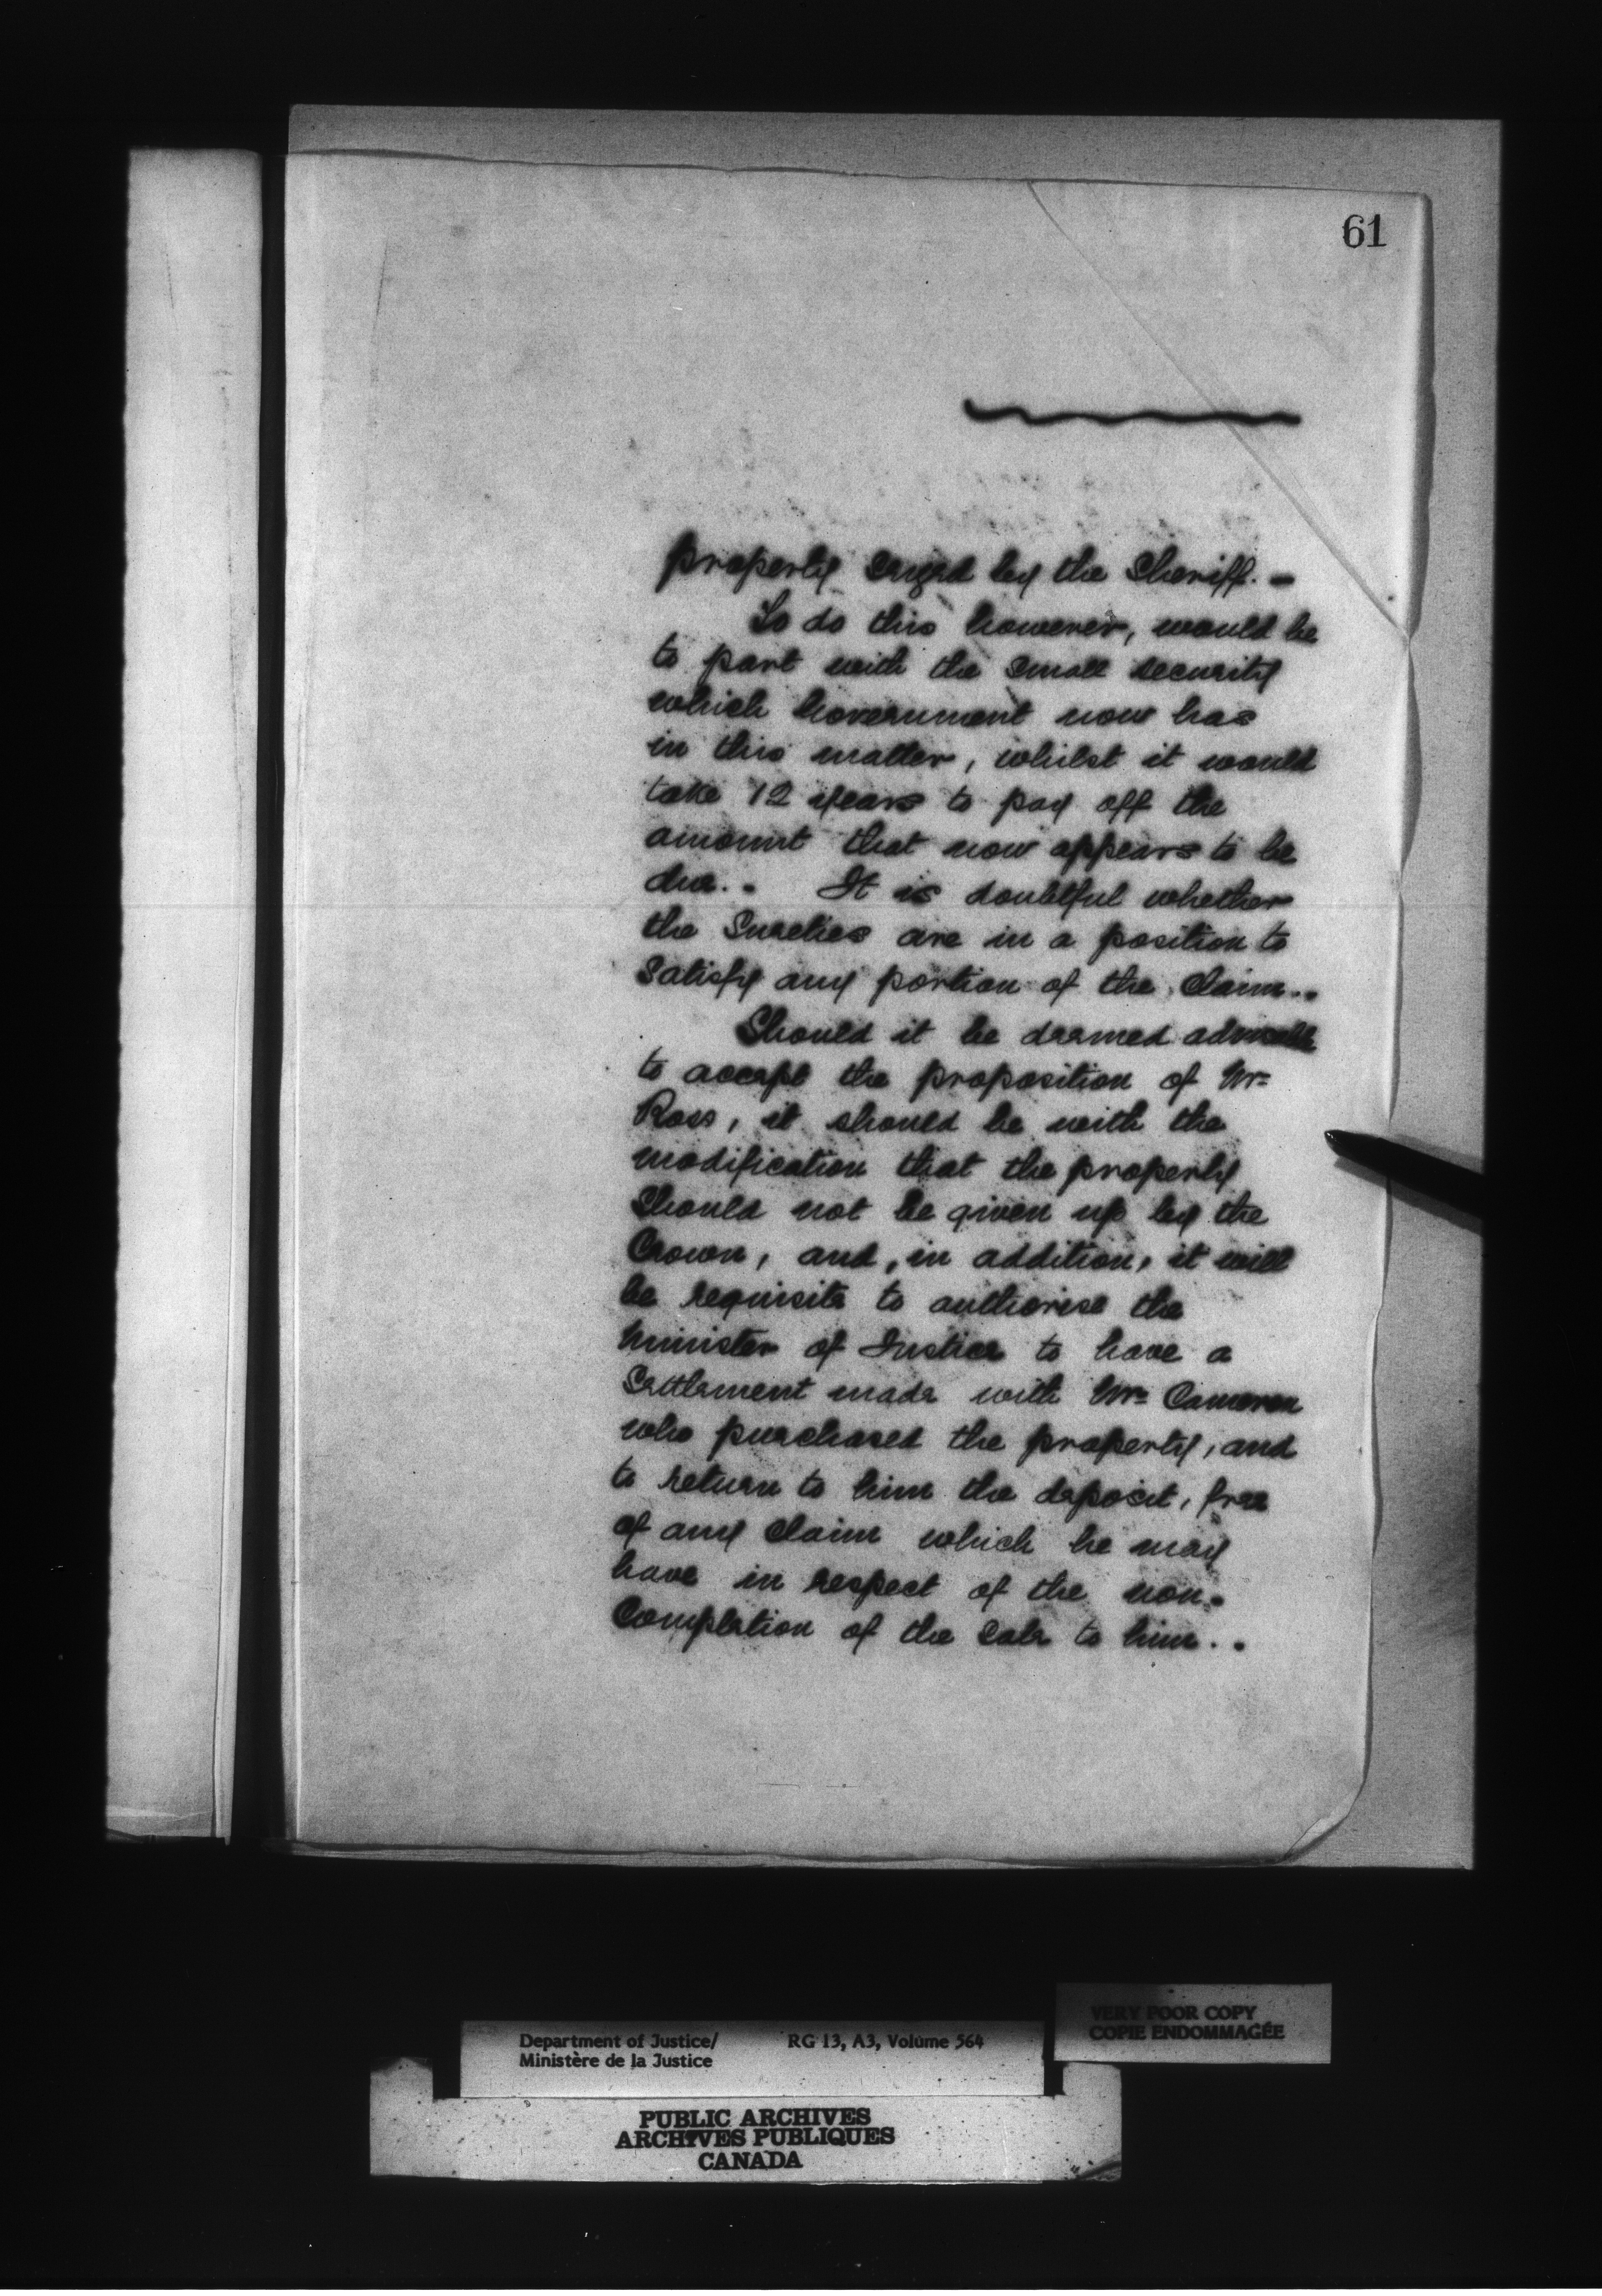 61
property seized by the Sheriff. -
To do this however, would be
to part with the small security
which Government now has
in this matter, whilst it would
take 12 years to pay off the
amount that now appears to be
due.. It is doubtful whether
the Sureties are in a position to
satisfy any portion of the Claim..
Should it be deemed advisable
to accept the proposition of Mr.
Ross, it should be with the
modification that the property
should not be given up by the
Crown, and, in addition, it will
be requisite to authorise the
Minister of Justice to have a
Settlement made with Mr. Cameron
who purchased the property, and
to return to him the deposit, free
of any Claim which he may
have in respect of the non-
Completion of the Sale to him..
VERY POOR COPY
COPIE ENDOMMAGÉE
Department of Justice/ RG 13, A3, Volume 564
Ministère de la Justice
PUBLIC ARCHIVES
ARCHIVES PUBLIQUES
CANADA